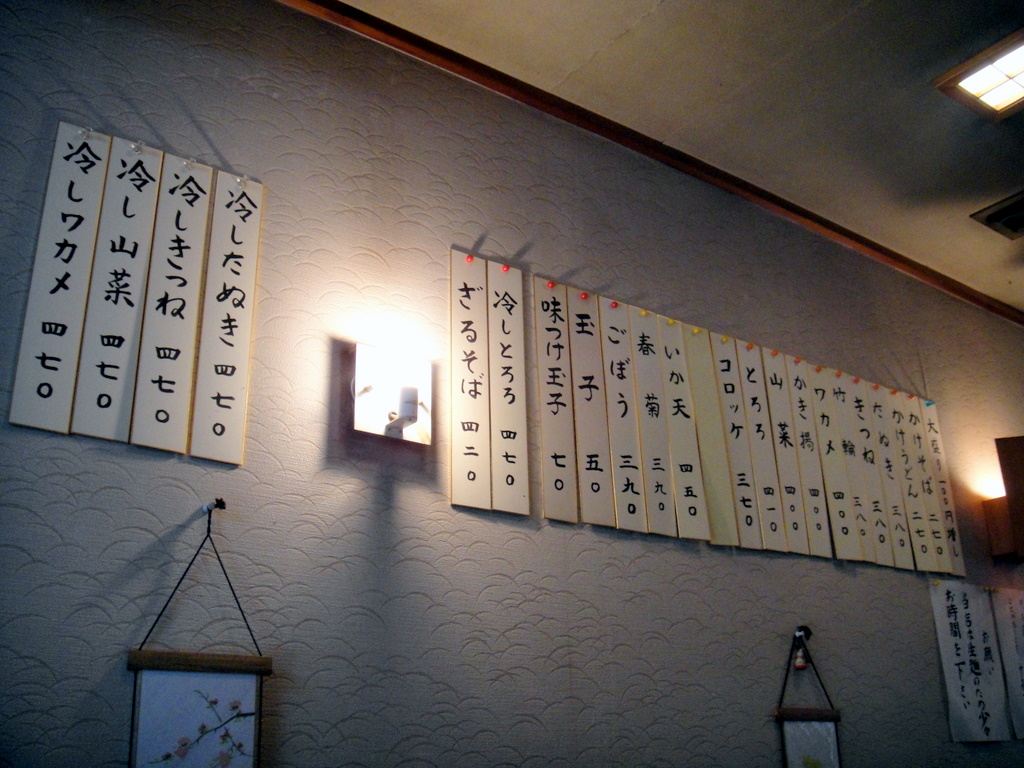 大盛り一〇〇円増し
かけそば 二七〇
かけうどん 二七〇
たぬき 三八〇
きつね 三八〇
竹輪 三八〇
ワカメ 四〇〇
かき揚 四〇〇
山菜 四〇〇
とろろ 四一〇
コロッケ 三七〇
いか天 四五〇
春菊 三九〇
ごぼう 三九〇
玉子 五〇
味つけ玉子 七〇
冷しとろろ 四七〇
ざるそば 四二〇
冷したぬき 四七〇
冷しきつね 四七〇
冷し山菜 四七〇
冷しワカメ 四七〇
お願い
当店は生麺のため少々
お時間を下さい